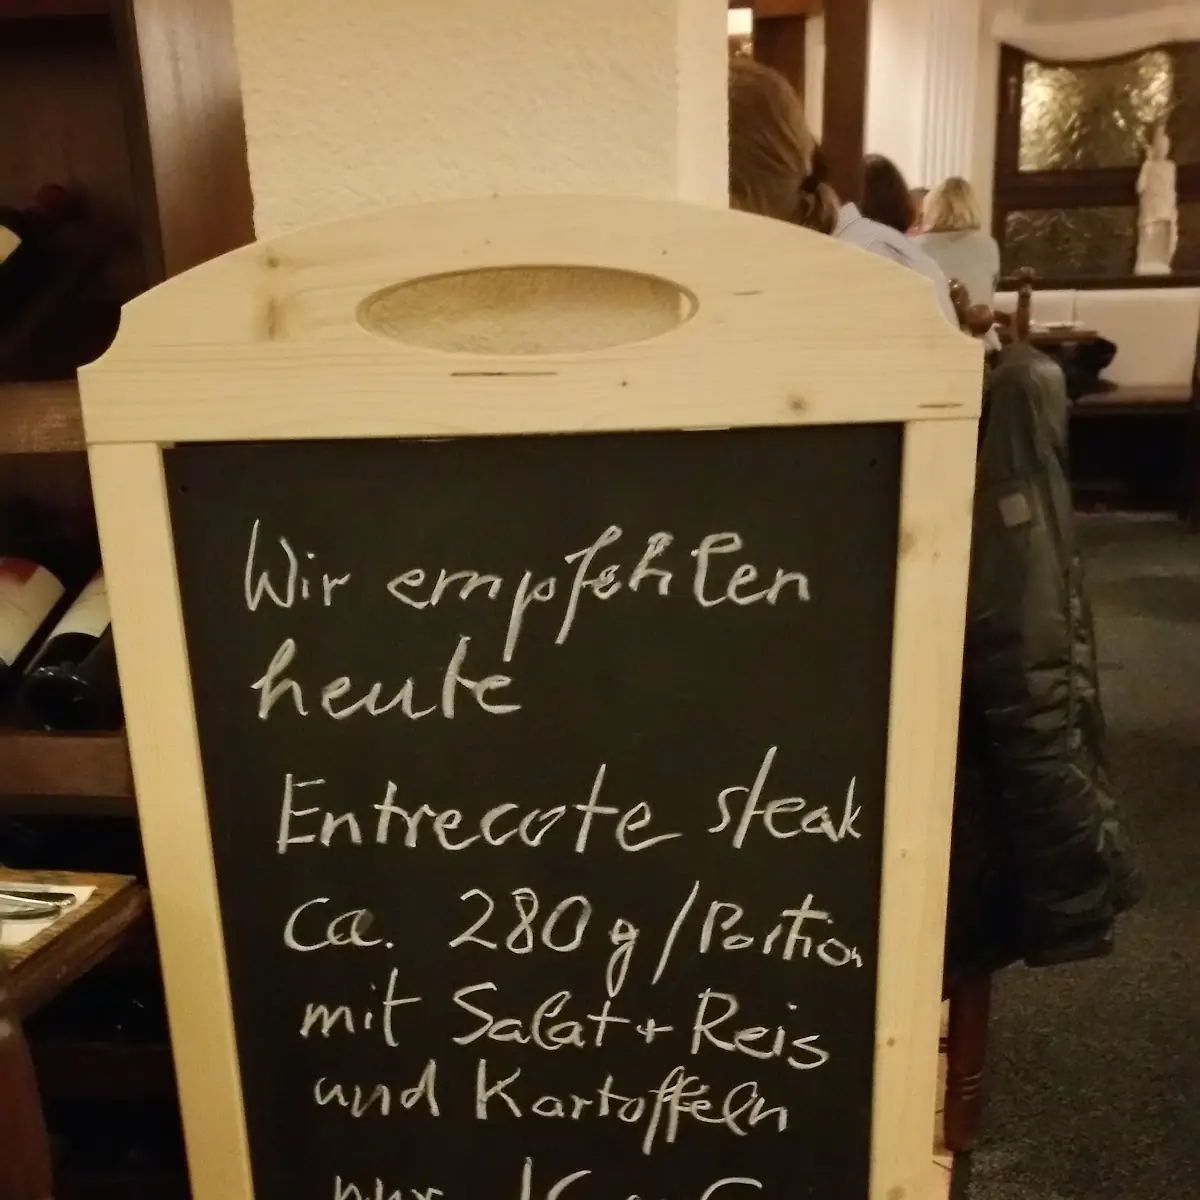 Wir empfehlen
heute
Entrecote steak
ca. 280 g / Portion
mit Salat + Reis
und Kartoffeln
nur